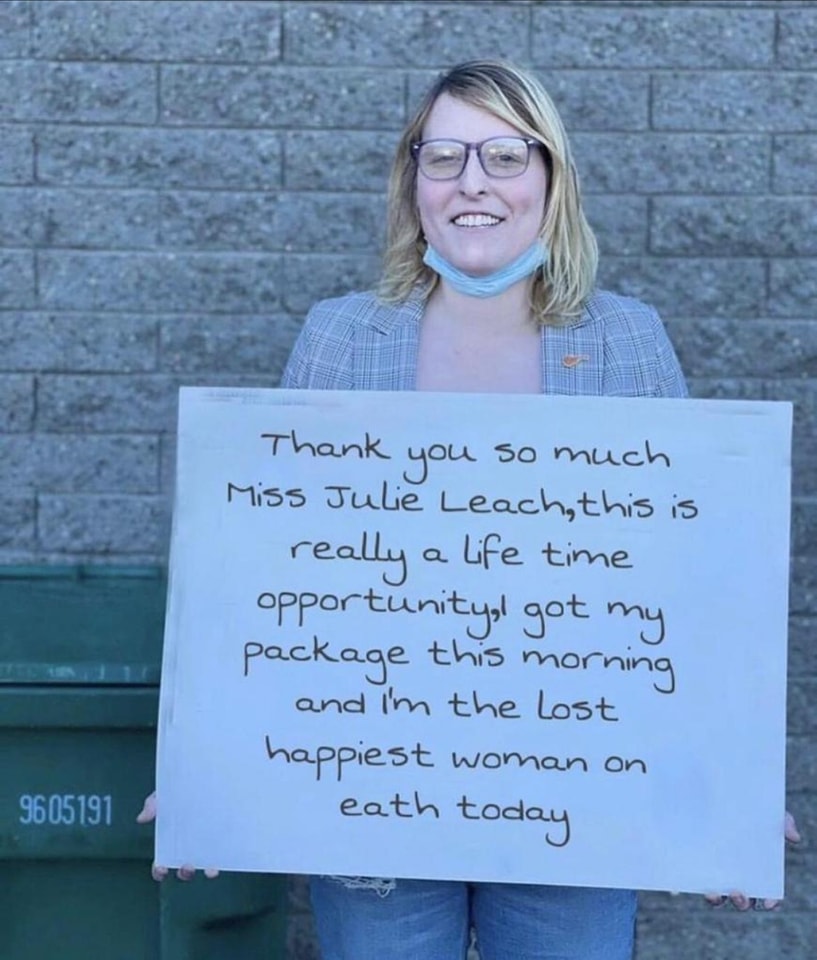 Thank you so much
Miss Julie Leach,this is
really a life time
opportunity,I got my
package this morning
and I'm the lost
happiest woman on
eath today
9605191